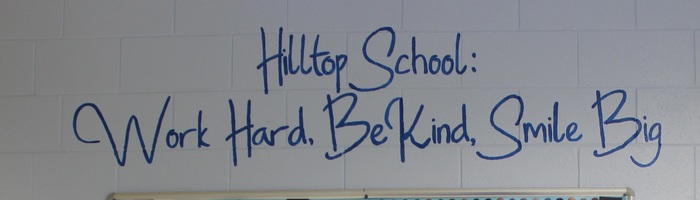 Hilltop School:
Work Hard, Be Kind, Smile Big